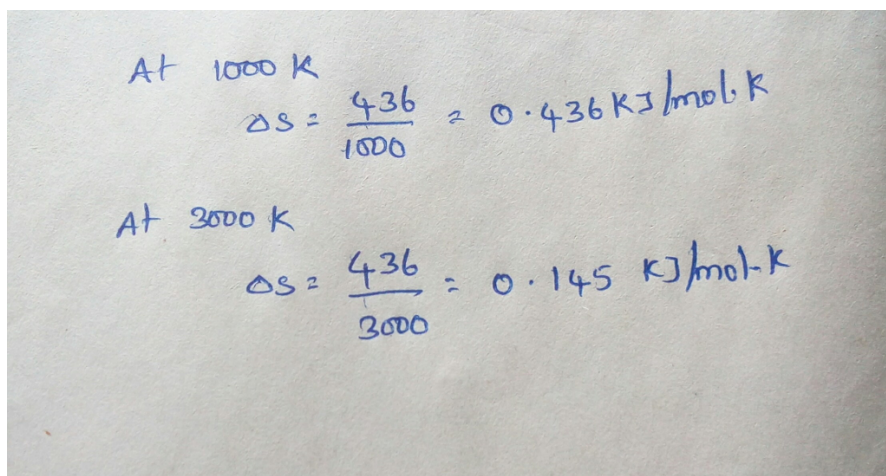 At 1000 K
ΔS = 436/1000 = 0.436 KJ/mol.K
At 3000 K
ΔS = 436/3000 = 0.145 KJ/mol-K